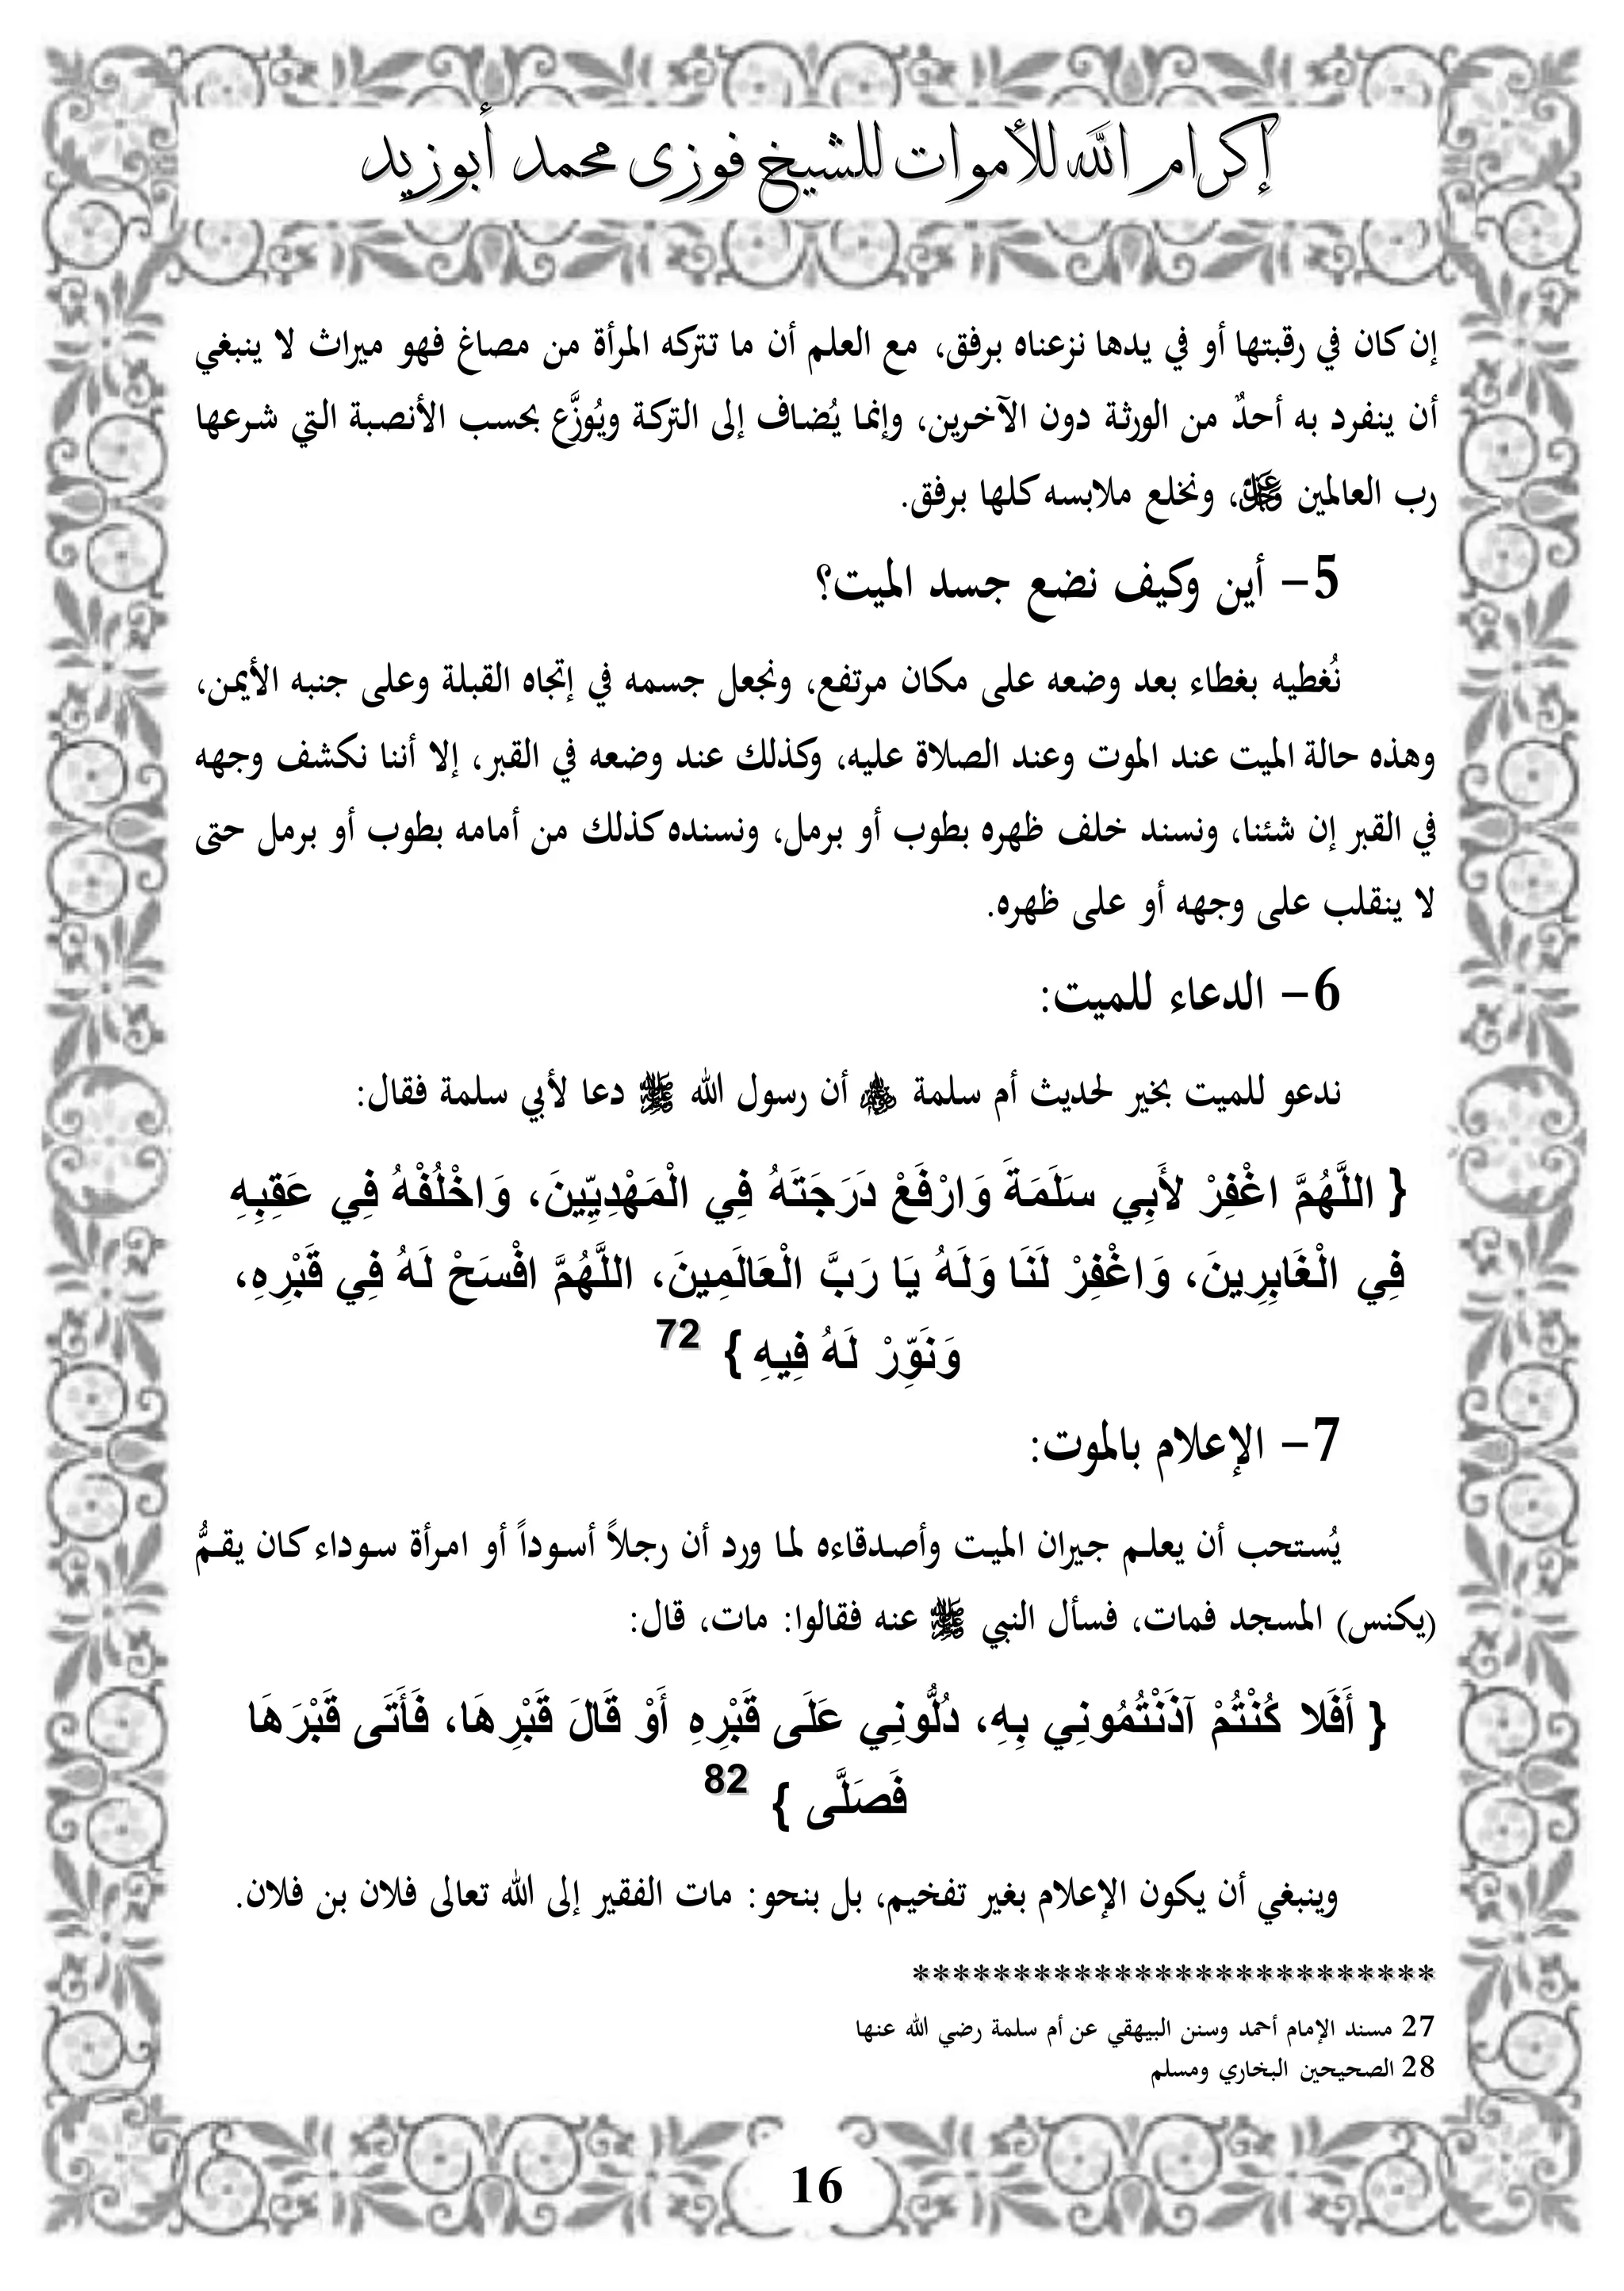 إكرام الله للأموات للشيخ فوزى محمد أبوزيد
إن كان في رقبتها أو في يدها نزعناه برفق، مع العلم أن ما تتركه المرأة من مصاغ فهو ميراث لا ينبغي
أن ينفرد به أحدٌ من الورثة دون الآخرين، وإنما يُضاف إلى التركة ويُوزَّع بحسب الأنصبة التي شرعها
رب العالمين عزوجل، ونخلع ملابسه كلها برفق.
5- أين وكيف نضع جسد الميت؟
نُغطيه بغطاء بعد وضعه على مكان مرتفع، ونجعل جسمه في إتجاه القبلة وعلى جنبه الأيمن،
وهذه حالة الميت عند الموت وعند الصلاة عليه، وكذلك عند وضعه في القبر، إلا أننا نكشف وجهه
في القبر إن شئنا، ونسند خلف ظهره بطوب أو برمل، ونسنده كذلك من أمامه بطوب أو برمل حتى
لا ينقلب على وجهه أو على ظهره.
6- الدعاء للميت:
ندعو للميت بخير لحديث أم سلمة رضي الله عنها أن رسول الله ﷺ دعا لأبي سلمة فقال:
{ اللَّهُمَّ اغْفِرْ لأَبِي سَلَمَةَ وَارْفَعْ دَرَجَتَهُ فِي الْمَهْدِيِّينَ، وَاخْلُفْهُ فِي عَقِبِهِ
فِي الْغَابِرِينَ، وَاغْفِرْ لَنَا وَلَهُ يَا رَبَّ الْعَالَمِينَ، اللَّهُمَّ افْسَحْ لَهُ فِي قَبْرِهِ،
وَنَوِّرْ لَهُ فِيهِ } 72
7- الإعلام بالموت:
يُستحب أن يعلم جيران الميت وأصدقاءه لما ورد أن رجلاً أسوداً أو امرأة سوداء كان يقمُّ
(يكنس) المسجد فمات، فسأل النبي ﷺ عنه فقالوا: مات، قال:
{ أَفَلا كُنْتُمْ آذَنْتُمُونِي بِهِ، دُلُّونِي عَلَى قَبْرِهِ أَوْ قَالَ قَبْرِهَا، فَأَتَى قَبْرَهَا
فَصَلَّى } 82
وينبغي أن يكون الإعلام بغير تفخيم، بل بنحو: مات الفقير إلى الله تعالى فلان بن فلان.
**************************
27 مسند الإمام أحمد وسنن البيهقي عن أم سلمة رضي الله عنها
28 الصحيحين البخاري ومسلم
16